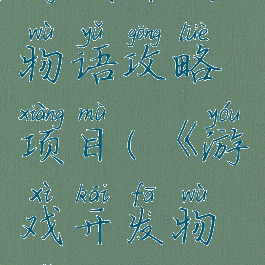 wù yǔ gōng lüè
物语攻略
xiàng mù yóu
项目(《游
xì kāi fā wù
戏开发物